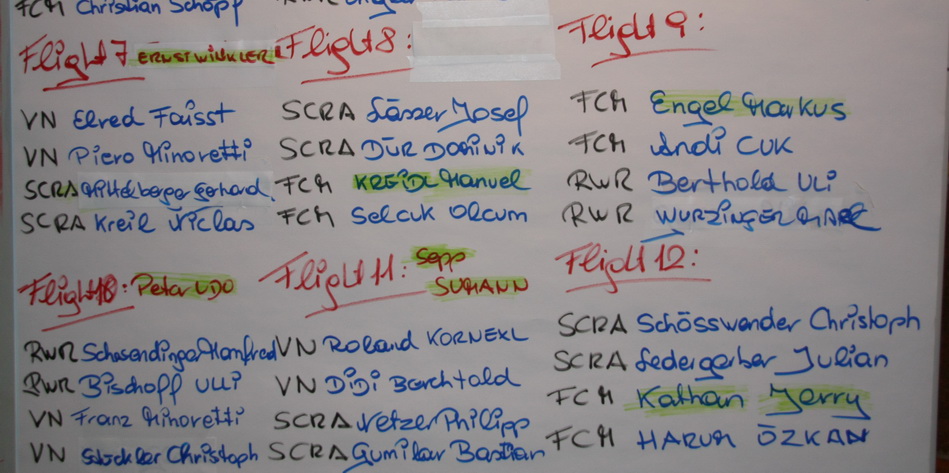 FCM Christian Schöpf
Flight 7 ERNST WINKLER
VN Elred Faisst
VN Piero Minoretti
SCRA Gerhard
SCRA Kreil Niclas
Flight 8:
SCRA Lässer Josef
SCRA DÜR DOMINIK
FCM KREIDL Manuel
FCM Selcuk Olcum
Flight 9:
FCM Engel Markus
FCM Andi CUK
RWR Berthold ULI
RWR WURZINGER MARC
Flight 10: Peter UDO
RWR Schasendinger Manfred
RWR Bischoff ULLI
VN Franz Minoretti
VN Christoph
Flight 11: Sepp
SUMANN
VN Roland KORNEXL
VN DiDi Berchtold
SCRA Netzer Philipp
SCRA Gumilar Bastian
Flight 12:
SCRA Schösswender Christoph
SCRA Federgerber Julian
FCM Kathan Jerry
FCM HARUN ÖZKAN